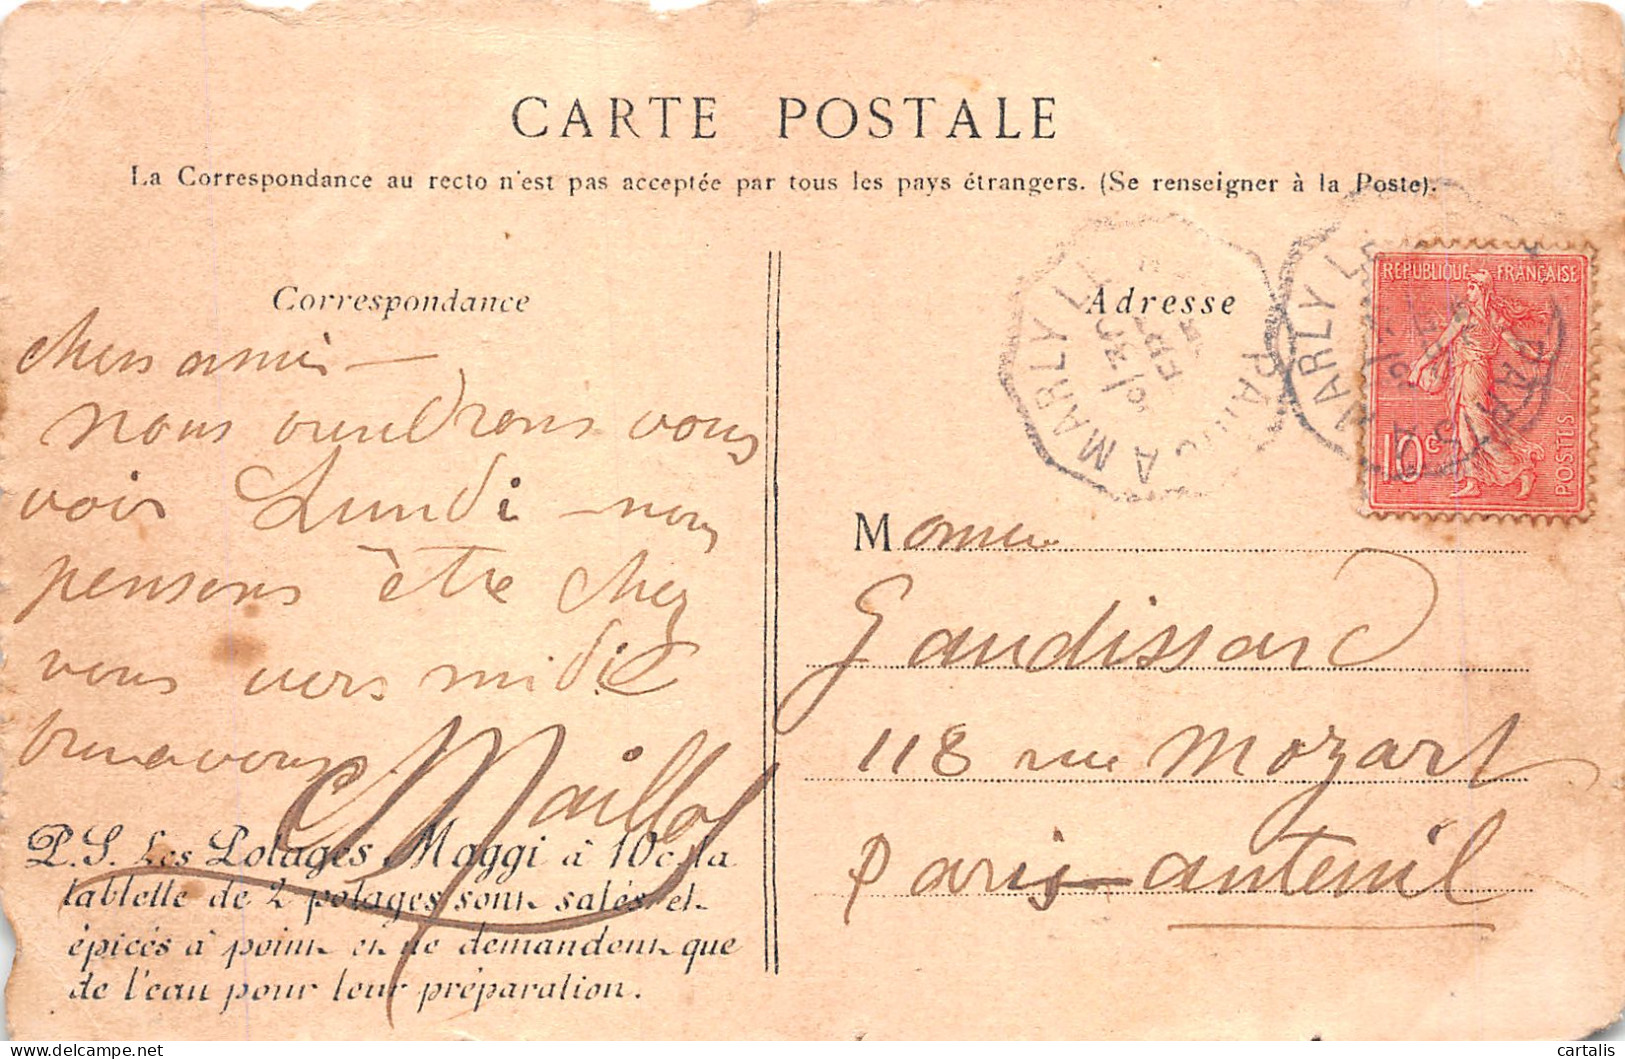 CARTE POSTALE
La Correspondance au recto n'est pas acceptée par tous les pays étrangers. (Se renseigner à la Poste).
Correspondance
chers amis
nous viendrons vous
voir Lundi nous
pensons être chez
vous vers midi
Maillol
P.S. Les Potages Maggi à 10c. la
tablette de 2 potages sont salés et
épicés à point et ne demandent que
de l'eau pour leur préparation.
Adresse
MARLY
PARIS
MARLY
REPUBLIQUE FRANÇAISE
10c
POSTES
Monsieur
Gaudissard
118 rue Mozart
Paris-auteuil
cartalis